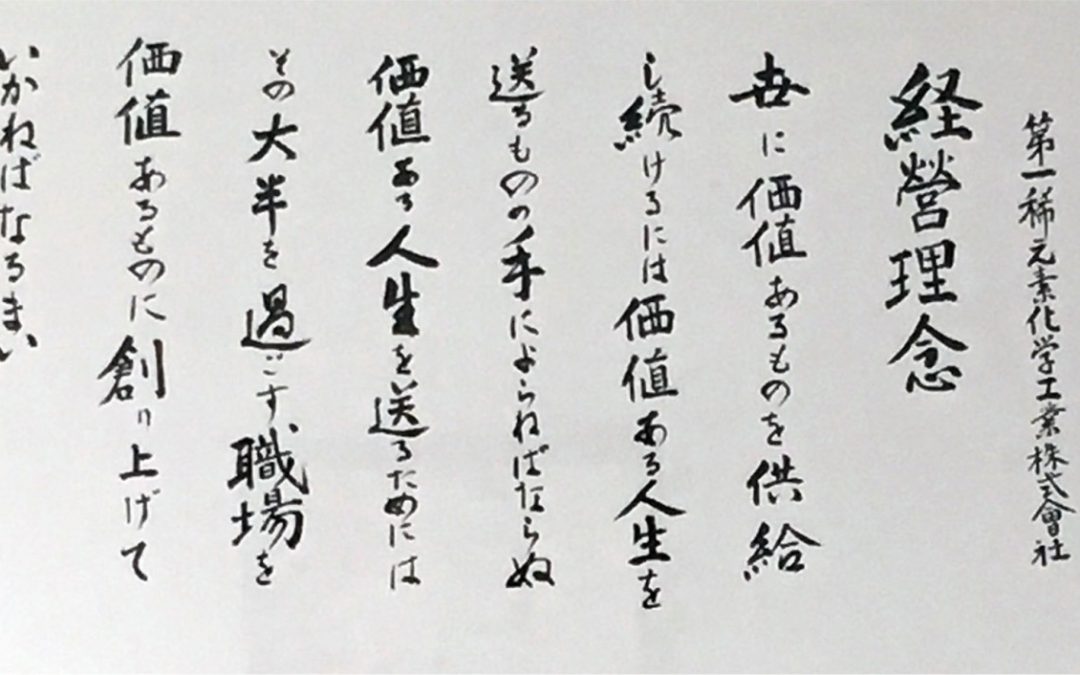 第一稀元素化学工業株式會社
経営理念
世に価値あるものを供給
し続けるには価値ある人生を
送るものの手によらねばならぬ
価値ある人生を送るためには
その大半を過ごす職場を
価値あるものに創り上げて
いかねばなるまい